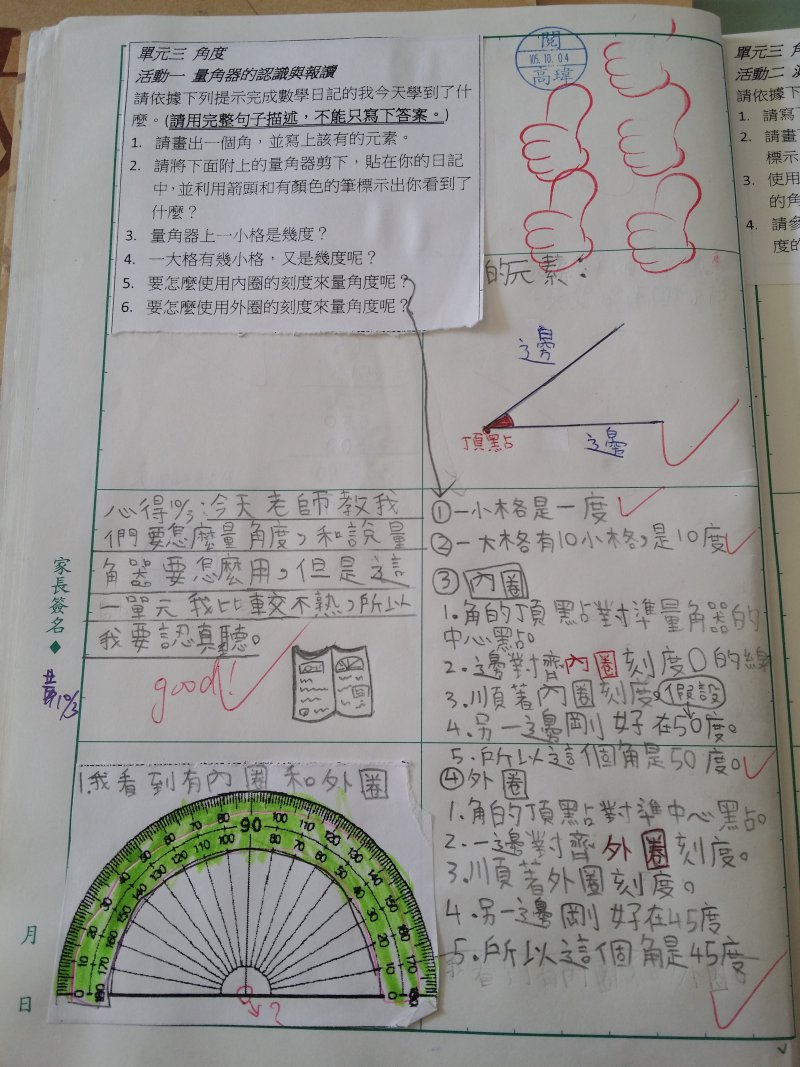 單元三 角度
活動一 量角器的認識與報讀
請依據下列提示完成數學日記的我今天學到了什
麼。(請用完整句子描述,不能只寫下答案。)
1. 請畫出一個角,並寫上該有的元素。
2. 請將下面附上的量角器剪下,貼在你的日記
中,並利用箭頭和有顏色的筆標示出你看到了
什麼?
3. 量角器上一小格是幾度?
4. 一大格有幾小格,又是幾度呢?
5. 要怎麼使用內圈的刻度來量角度呢?
6. 要怎麼使用外圈的刻度來量角度呢?
閱
105.10.04
高瑋
的元素:
邊
頂點
邊
心得10/3:今天老師教我
們要怎麼量角度,和說量
角器要怎麼用,但是這
一單元我比較不熟,所以
我要認真聽。
good!
家長簽名◆
10/3
①一小格是一度
②一大格有10小格,是10度
③內圈
1.角的頂點對準量角器的
中心點。
2.邊對齊內圈刻度0的線
3.順著內圈刻度。假設
4.另一邊剛好在50度。
5.所以這個角是50度。
④外圈
1.角的頂點對準中心點。
2.一邊對齊外圈刻度。
3.順著外圈刻度。
4.另一邊剛好在45度
5.所以這個角是45度
1.我看到有內圈和外圈
90
?
月
日
單元三 角
活動二
請依據下
1. 請寫
2. 請畫
標示
3. 使用
的角
4. 請參
度的